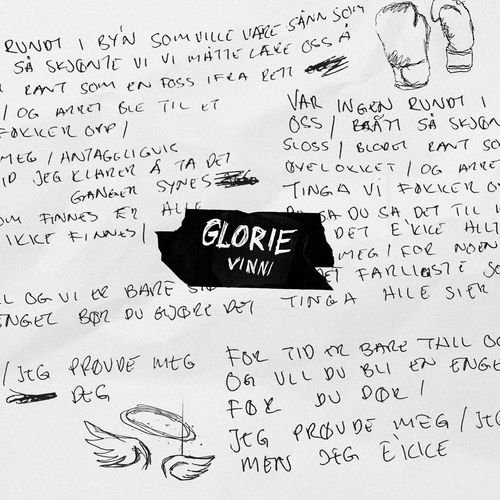 RUNDT I BY'N SOM VILLE VÆRE SÅNN SOM
SÅ SKJØNTE VI VI MÅTTE LÆRE OSS Å
RANT SOM EN FOSS IFRA RETT
/ OG ARRET BLE TIL ET
FØKKER OPP /
MEG / ANTAGELIGVIS
TID JEG KLARER Å TA DET
GANGER SYNES
SOM FINNES ER ALLE
IKKE FINNES /
OG VI ER BARE
ENGEL BØR DU GJØRE DET
/ JEG PRØVDE MEG
DEG
VAR INGEN RUNDT I
OSS / BRÅTT SÅ SKJØN
SLOSS / BLODET RANT SOM
ØYELOKKET / OG ARRE
TINGA VI FØKKER O
SA DU SA DET TIL
DET E'KKE ALLT
MEG / FOR NOEN
DET FARLIGSTE SO
TINGA ALLE SIER
GLORIE
VINNI
FOR TID ER BARE TALL OG
OG VLL DU BLI EN ENGE
FØR DU DØR /
JEG PRØVDE MEG / JEG
MEN JEG E'KKE